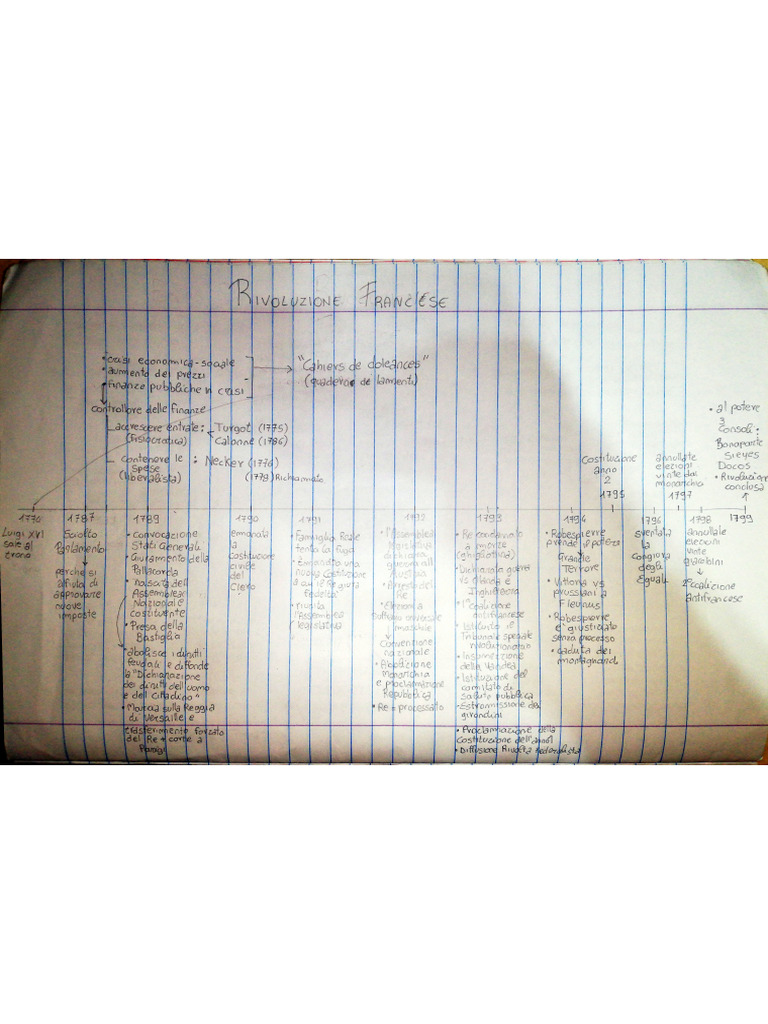 RIVOLUZIONE FRANCESE
• crisi economica-sociale
• aumento dei prezzi
• finanze pubbliche in crisi
"Cahiers de doleances"
(quaderno de lamenti)
controllore delle finanze
accrescere entrate: Turgot (1775)
(fisiocratica) Calonne (1786)
contenere le : Necker (1776)
spese
(liberalista) (1778) Richiamato
Costituzione
anno
2
annullate
elezioni
vinte dai
monarchici
• al potere
3
Consoli:
Bonaparte
Sieyes
Docos
• Rivoluzione
conclusa
1770 1787 1789 1790 1791 1792 1793 1794 1795 1796 1797 1798 1799
Luigi XVI
sale al
trono
Sciolto
Parlamento
perché si
rifiuta di
approvare
nuove
imposte
• convocazione
Stati Generali
• Giuramento della
Pallacorda
• nascita dell'
Assemblea
Nazionale
costituente
• Presa della
Bastiglia
abolisce i diritti
feudali e difonde
la "Dichiarazione
dei diritti dell'uomo
e del Cittadino"
• Marcia sulla Reggia
di Versaille e
trasferimento forzato
del Re + corte a
Parigi
emanata
la
Costituzione
civile
del
Clero
• Famiglia Reale
tenta la fuga
• Emanata una
nuova Costituzione
a cui il Re giura
fedeltà
• riunita
l'Assemblea
legislativa
• l'Assemblea
legislativa
dichiara
guerra all'
Austria
• Arresto del
Re
• Elezioni a
suffragio universale
maschile
Convenzione
nazionale
• Abolizione
monarchia
e proclamazione
Repubblica
• Re = processato
• Re condannato
a morte
(ghigliottina)
• Dichiarata guerra
vs Olanda e
Inghilterra
• 1° coalizione
antifrancese
• Istituito il
Tribunale speciale
rivoluzionario
• Insurrezione
della Vandea
• Istituzione del
comitato di
salute pubblica
- Estromissione dei
girondini
• Proclamazione della
Costituzione dell'anno I
• Diffusione Rivolta Federalista
• Robespierre
prende il potere
Grande
Terrore
• Vittoria vs
prussiani a
Fleurus
• Robespierre
è giustiziato
senza processo
• caduta dei
montagnardi
sventata
la
congiura
degli
Eguali
annullate
elezioni
vinte
giacobini
2° coalizione
antifrancese